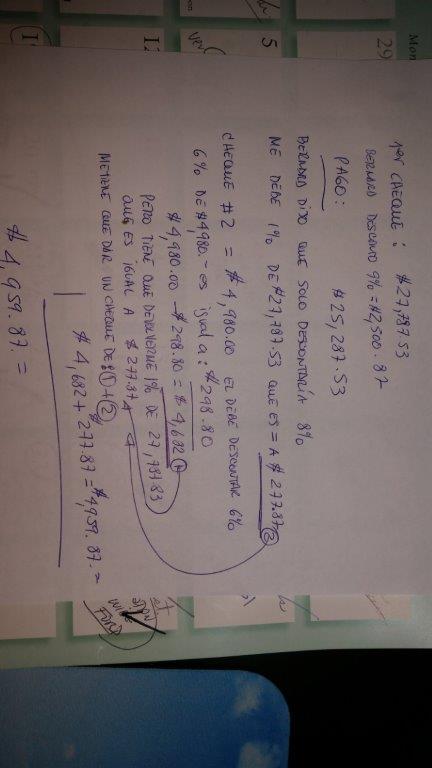 1er CHEQUE: $27,787.53
BERNARD DESCONTO 9% = $2,500.87
PAGO: $25,287.53
BERNARD DIJO QUE SOLO DESCONTARIA 8%
ME DEBE 1% DE $27,787.53 QUE ES = A $277.87 2
CHEQUE #2 = $4,980.00 EL DEBE DESCONTAR 6%
6% DE $4,980.- es igual a: $298.80
$4,980.00 - $298.80 = $4,682 1
PERO TIENE QUE DEVOLVERME 1% DE 27,787.83
QUE ES IGUAL A $277.87
ME TIENE QUE DAR UN CHEQUE DE: 1 + 2
$4,682 + 277.87 = $4,959.87.=
$4,959.87.=
Mon
29
5
12
FORD